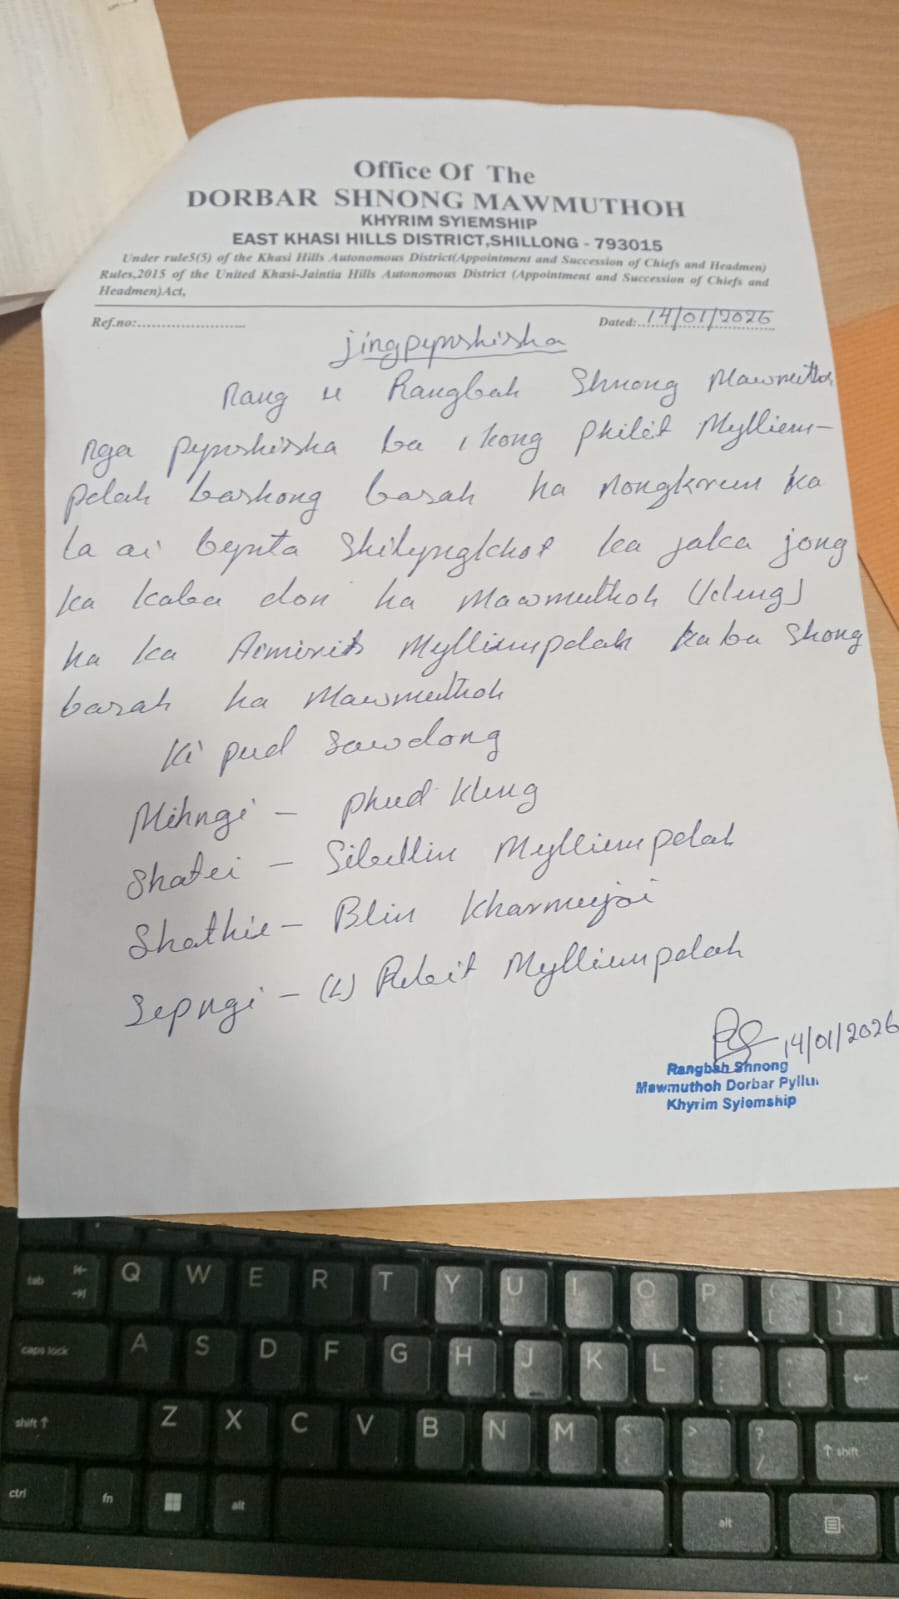 Office Of The
DORBAR SHNONG MAWMUTHOH
KHYRIM SYIEMSHIP
EAST KHASI HILLS DISTRICT,SHILLONG - 793015
Under rule5(5) of the Khasi Hills Autonomous District(Appointment and Succession of Chiefs and Headmen)
Rules,2015 of the United Khasi-Jaintia Hills Autonomous District (Appointment and Succession of Chiefs and
Headmen)Act,
Ref.no:........................ Dated: 14/01/2026
jingpynshisha
Nang u Rangbah Shnong Mawmuthoh
nga pynshisha ba i kong Philit Mylliem-
pdah bashong basah ha Nongkrem ka
la ai bynta shilyngkhot ka jaka jong
ka kaba don ha Mawmuthoh
ha ka Mylliumpdah kaba shong
basah ha Mawmuthoh
Ki pud sawdong
Mihngi - Phud Kling
Shatei - Myllium pdah
Shathie - Blin Kharmujai
Sepngi - (L) Myllium pdah
14/01/2026
Rangbah Shnong
Mawmuthoh Dorbar Pyllun
Khyrim Syiemship
tab Q W E R T Y U I O P { [ } ]
caps lock A S D F G H J K L
shift Z X C V B N M < > ? / shift
ctrl fn alt alt